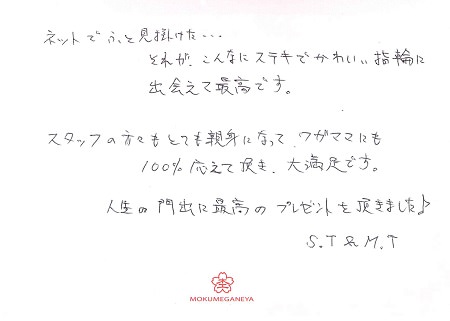 ネットでふと見掛けた・・・
それが、こんなにステキでかわいい指輪に
出会えて最高です。
スタッフの方々もとても親身になって ワガママにも
100%応えて頂き、大満足です。
人生の門出に最高のプレゼントを頂きました♪
S.T & M.T
MOKUMEGANEYA